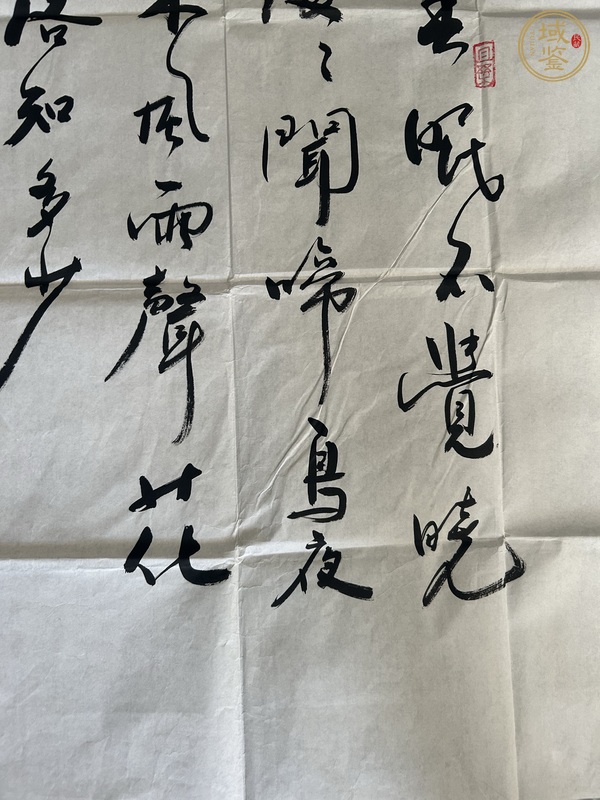 春眠不覺曉
處〻聞啼鳥夜
來風雨聲花
落知多少
域鉴